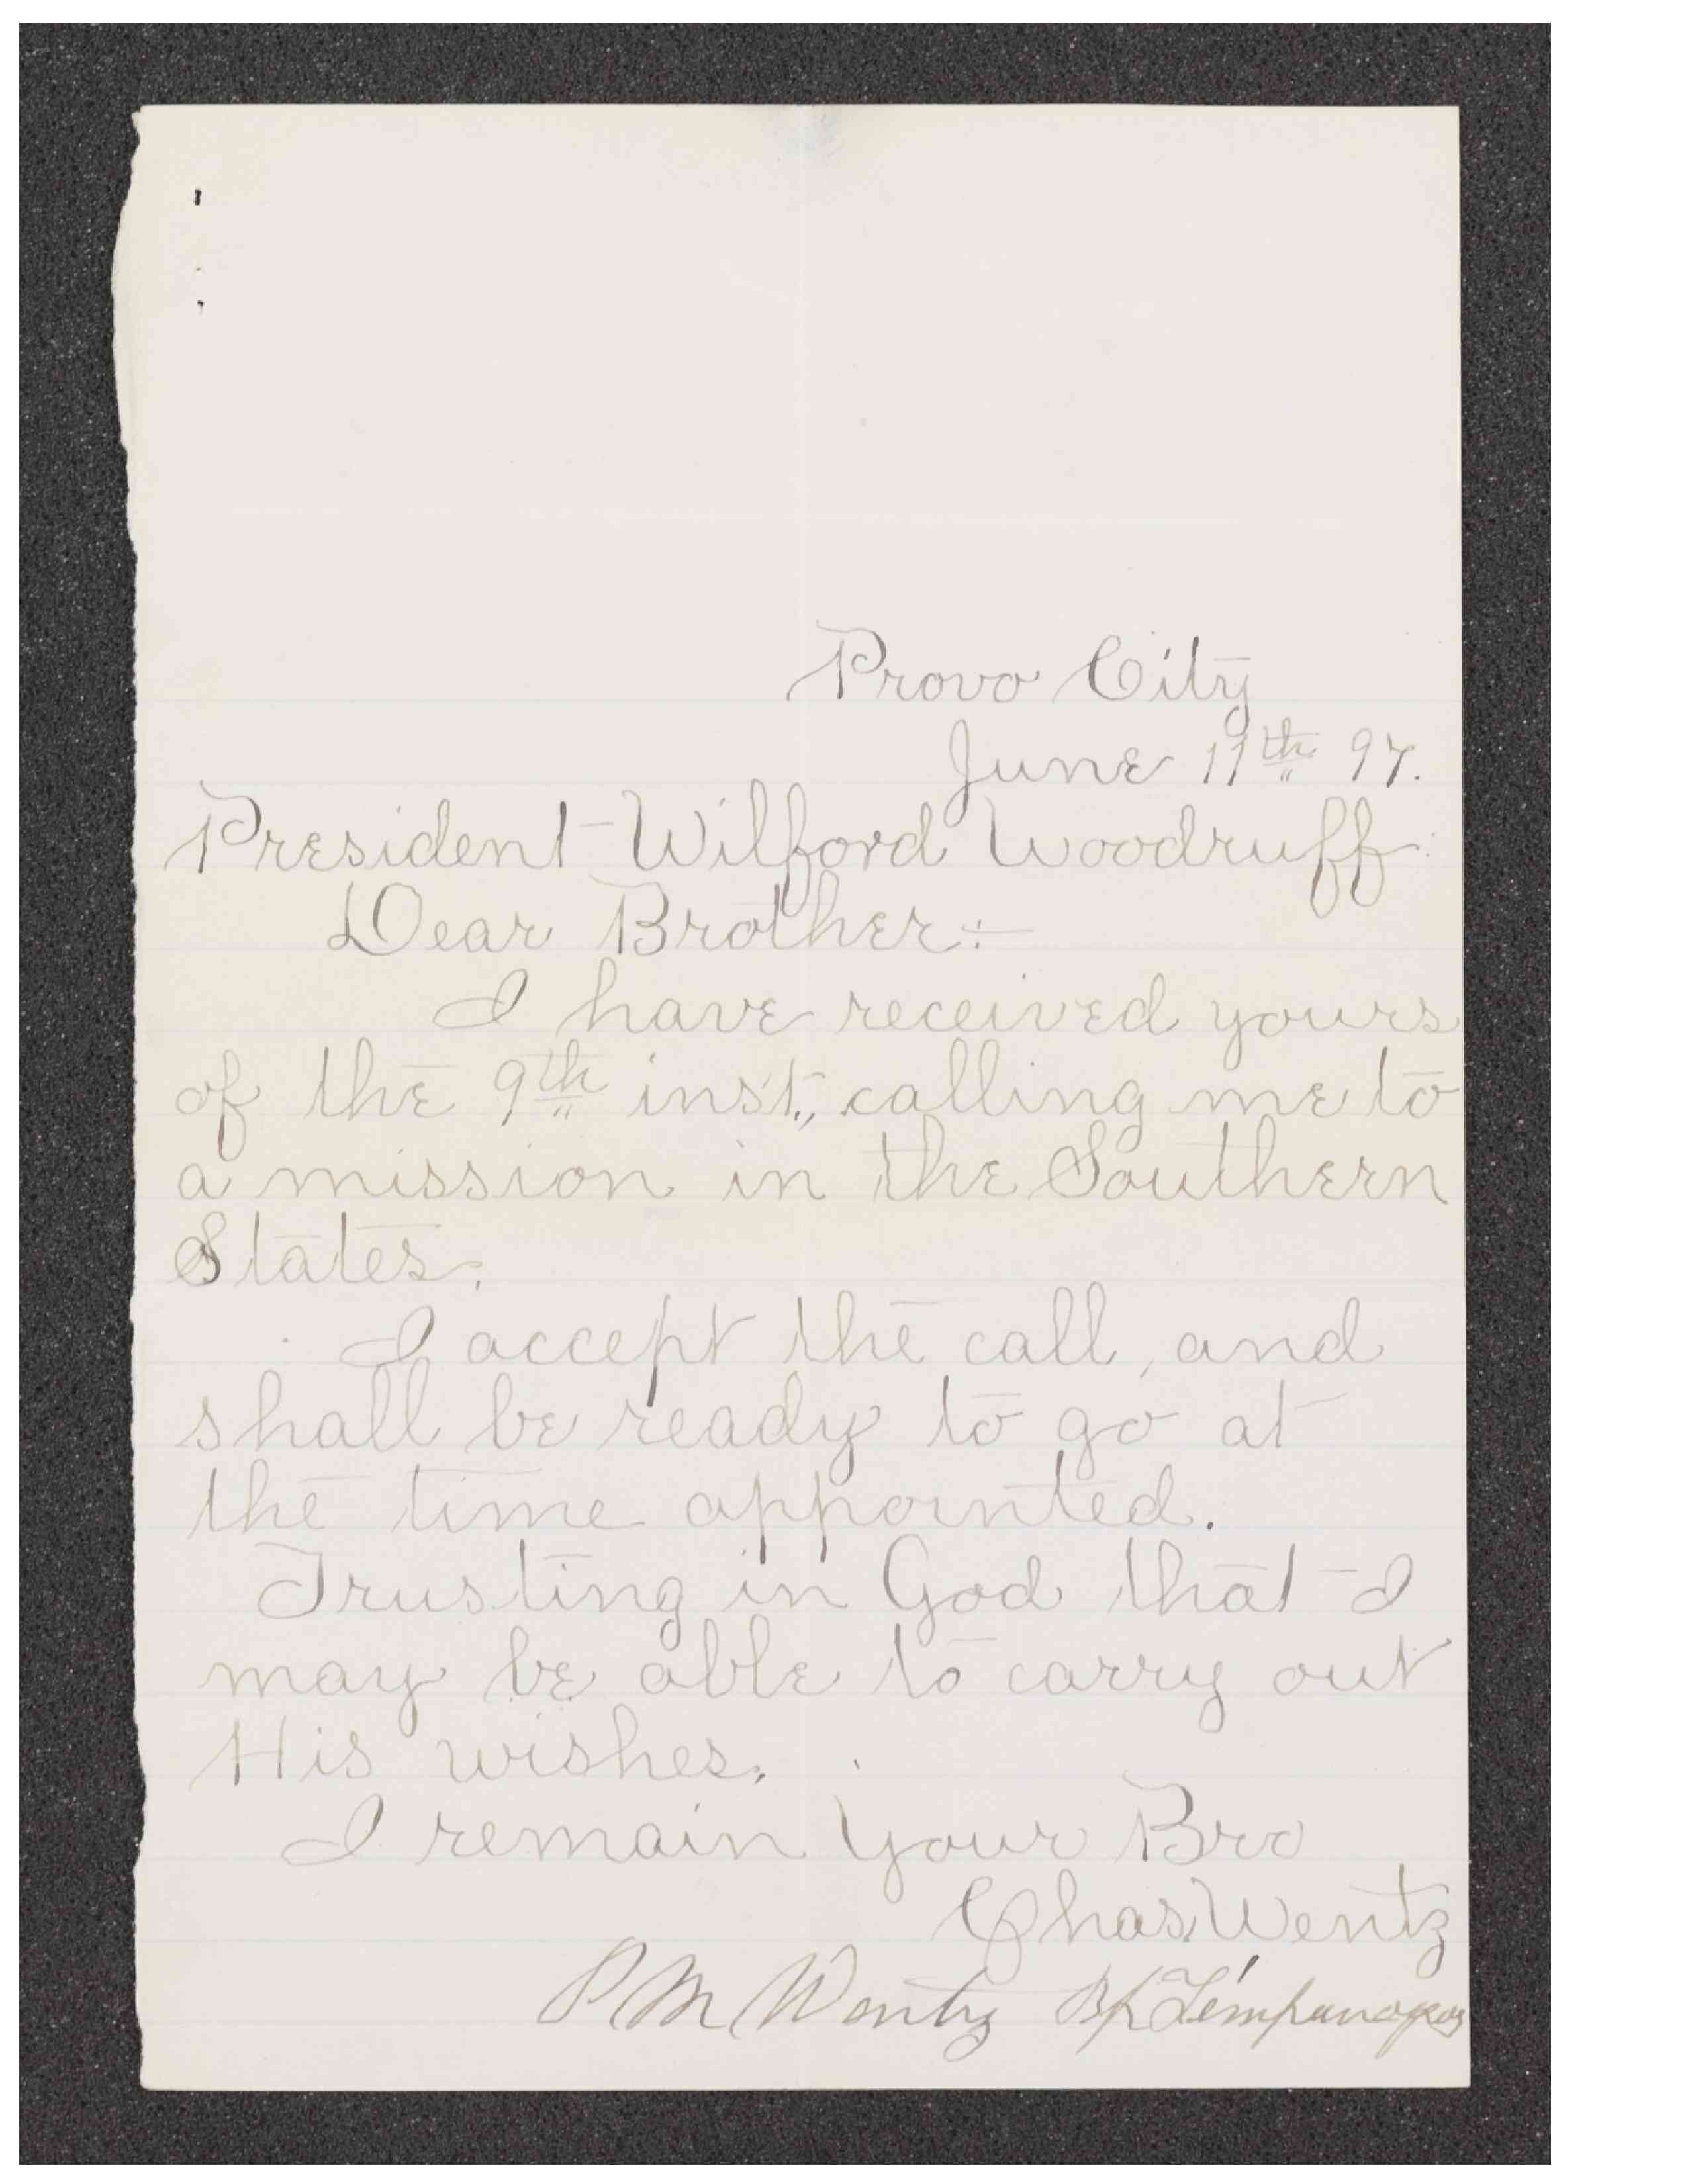 Provo City
June 11th 97.
President Wilford Woodruff
Dear Brother:-
I have received yours
of the 9th inst., calling me to
a mission in the Southern
States.
I accept the call, and
shall be ready to go at
the time appointed.
Trusting in God that I
may be able to carry out
His wishes.
I remain Your Bro
Chas. Wentz
P M Wentz Bp Timpanogos